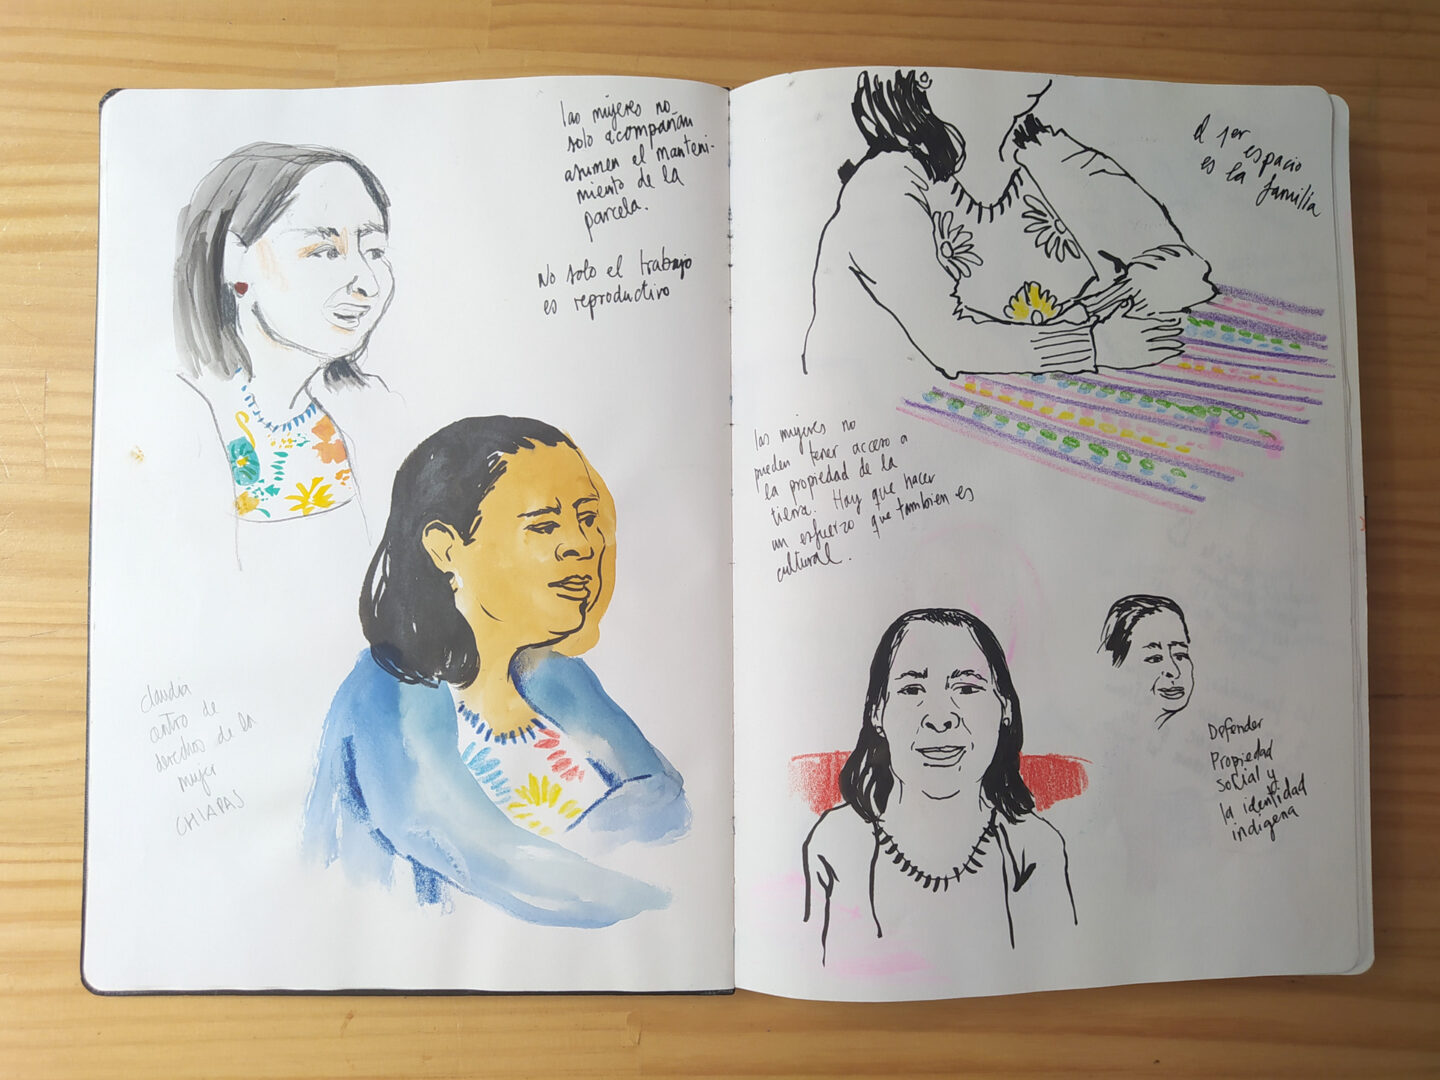 las mujeres no
solo acompañan
asumen el manteni-
miento de la
parcela.
No solo el trabajo
es reproductivo
claudia
centro de
derechos de la
mujer
CHIAPAS
el 1er espacio
es la familia
las mujeres no
pueden tener acceso a
la propiedad de la
tierra. Hay que hacer
un esfuerzo que tambien es
cultural.
Defender
Propiedad
social y
la identidad
indigena